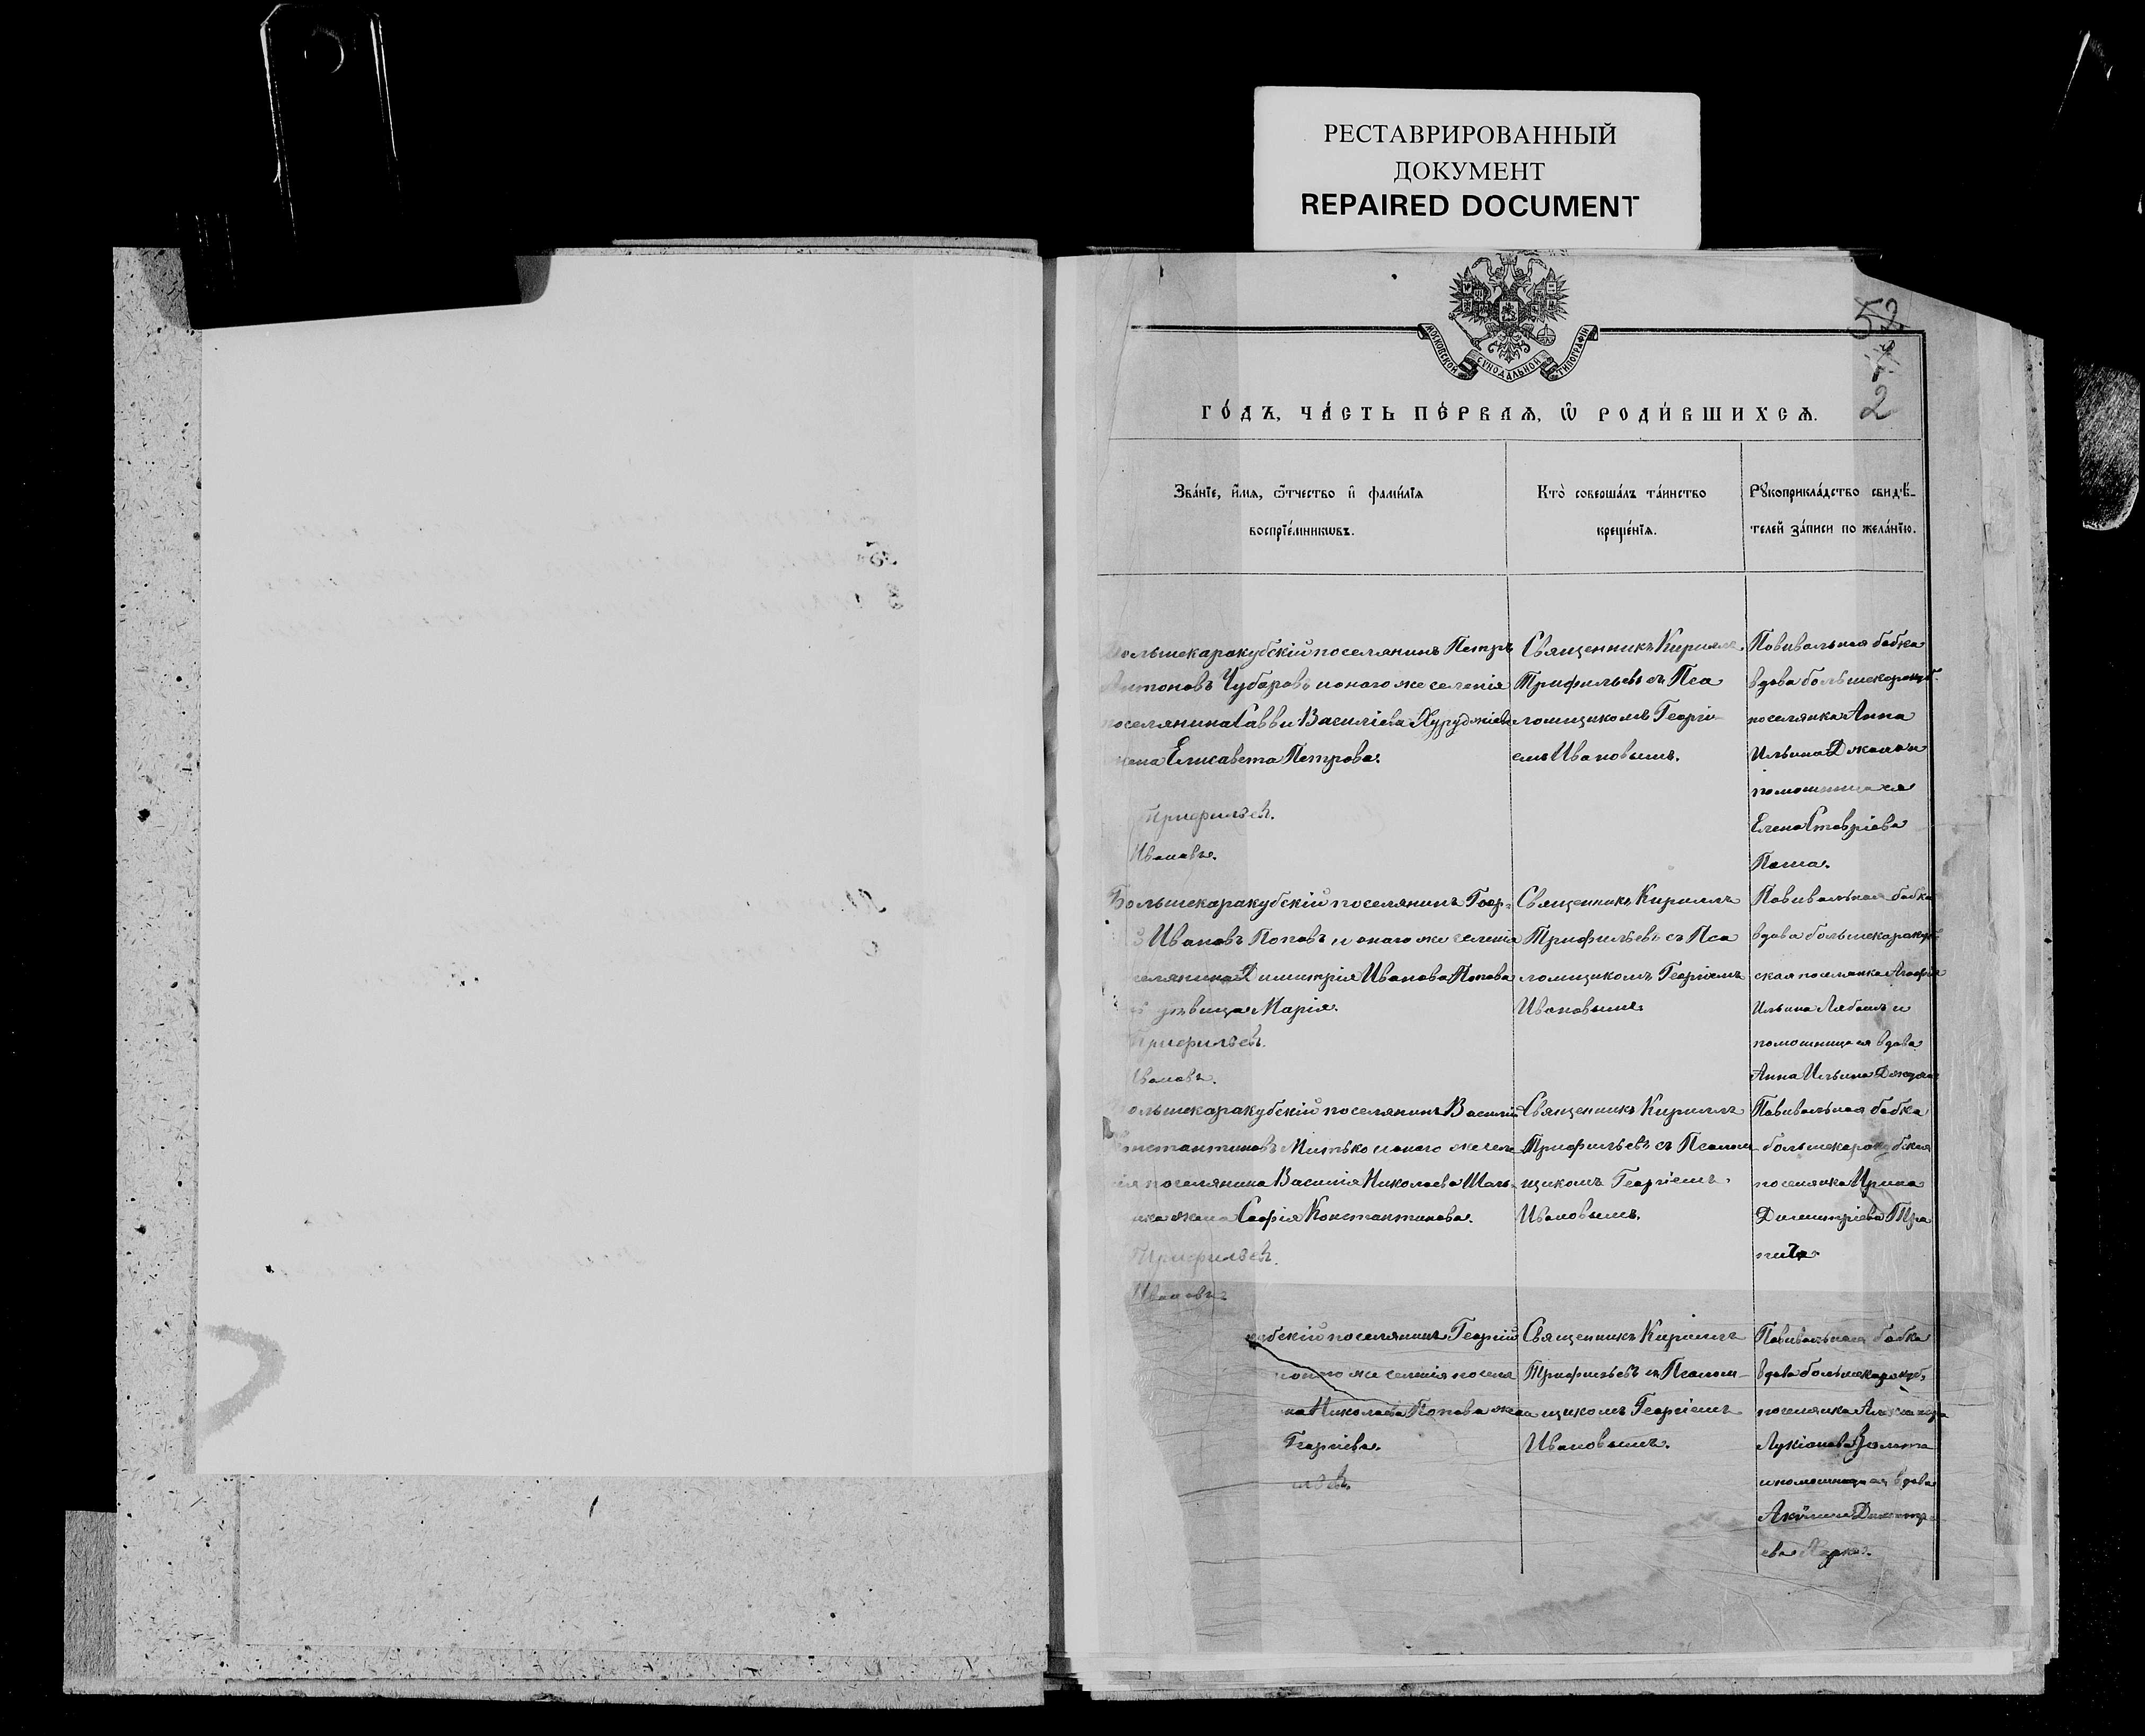 РЕСТАВРИРОВАННЫЙ
ДОКУМЕНТ
REPAIRED DOCUMENT
МОСКОВСКОЙ СѴНОДАЛЬНОЙ ТИПОГРАФІИ
52
2
ГО́ДЪ, ЧА́СТЬ ПЕ́РВАѦ, Ѡ҆ РОДИ́ВШИХСѦ.
Зва́нїе, и҆́мѧ, ѻ҆́тчество и҆ фами́лїѧ
воспрїе́мникѡвъ.
Кто̀ соверша́лъ та́инство
креще́нїѧ.
Рꙋкоприкла́дство свидѣ́-
телей за́писи по жела́нїю.
Большекаракубскій поселянинъ Петръ
Антоновъ Чубаровъ и онаго же селенія
поселянина Саввы Василіева
жена Елисавета Петрова.
Трифильев.
Ивановъ.
Священникъ Кириллъ
Трифильевъ съ Пса
ломщикомъ Георгі-
емъ Ивановымъ.
Повивальная бабка
вдова большекаракуб.
поселянка Анна
Ильина
помошница ея
Елена Ставріева
Большекаракубскій поселянинъ Геор-
Ивановъ Поповъ и онаго же селенія
поселянина Димитрія Иванова Попова
дѣвица Марія.
Трифильев.
Ивановъ.
Священникъ Кириллъ
Трифильевъ съ Пса
ломщикомъ Георгіемъ
Ивановымъ.
Повивальная бабка
вдова большекаракуб
ская поселянка
Ильина и
помошница ея вдова
Анна Ильина
Большекаракубскій поселянинъ Василій
Константиновъ Митько и онаго же селе
нія поселянина Василія Николаева
жена Софія Константинова.
Трифильев.
Ивановъ
Священникъ Кириллъ
Трифильевъ съ Псалом
щикомъ Георгіемъ
Ивановымъ.
Повивальная бабка
большекаракубская
поселянка Ирина
Димитріева
кубскій поселянинъ Георгій
онаго же селенія поселя
на Николаева Попова жена
Георгіева.
Священникъ Кириллъ
Трифильевъ съ Псалом-
щикомъ Георгіемъ
Ивановымъ.
Повивальная бабка
вдова большекаракуб.
поселянка
Лукіанова
и помошница ея вдова